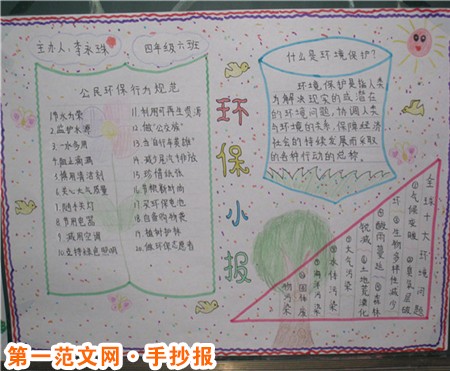 主办人:李永珠
四年级六班
公民环保行为规范
1.节水为荣
2.监护水源
3.一水多用
4.阻止滴漏
5.慎用清洁剂
6.关心大气质量
7.随手关灯
8.节用电器
9.减用空调
10.支持绿色照明
11.利用可再生资源
12.做"公交族"
13.当"自行车英雄"
14.减少尾气排放
15.珍惜纸张
17.买环保电池
18.自备购物袋
19.植树护林
20.做环保志愿者
环保小报
什么是环境保护?
环境保护是指人类
为解决现实的或潜在
的环境问题,协调人类
与环境的关系,保障经济
社会的持续发展而采取
的各种行动的总称。
全球十大环境问题
①气候变暖 ②臭氧层破
坏 ③生物多样性减少
④酸雨蔓延 ⑤森林
锐减 ⑥土地荒漠化
⑦大气污染
⑧水体污染
⑨海洋污染
⑩固体废
物污染
第一范文网·手抄报